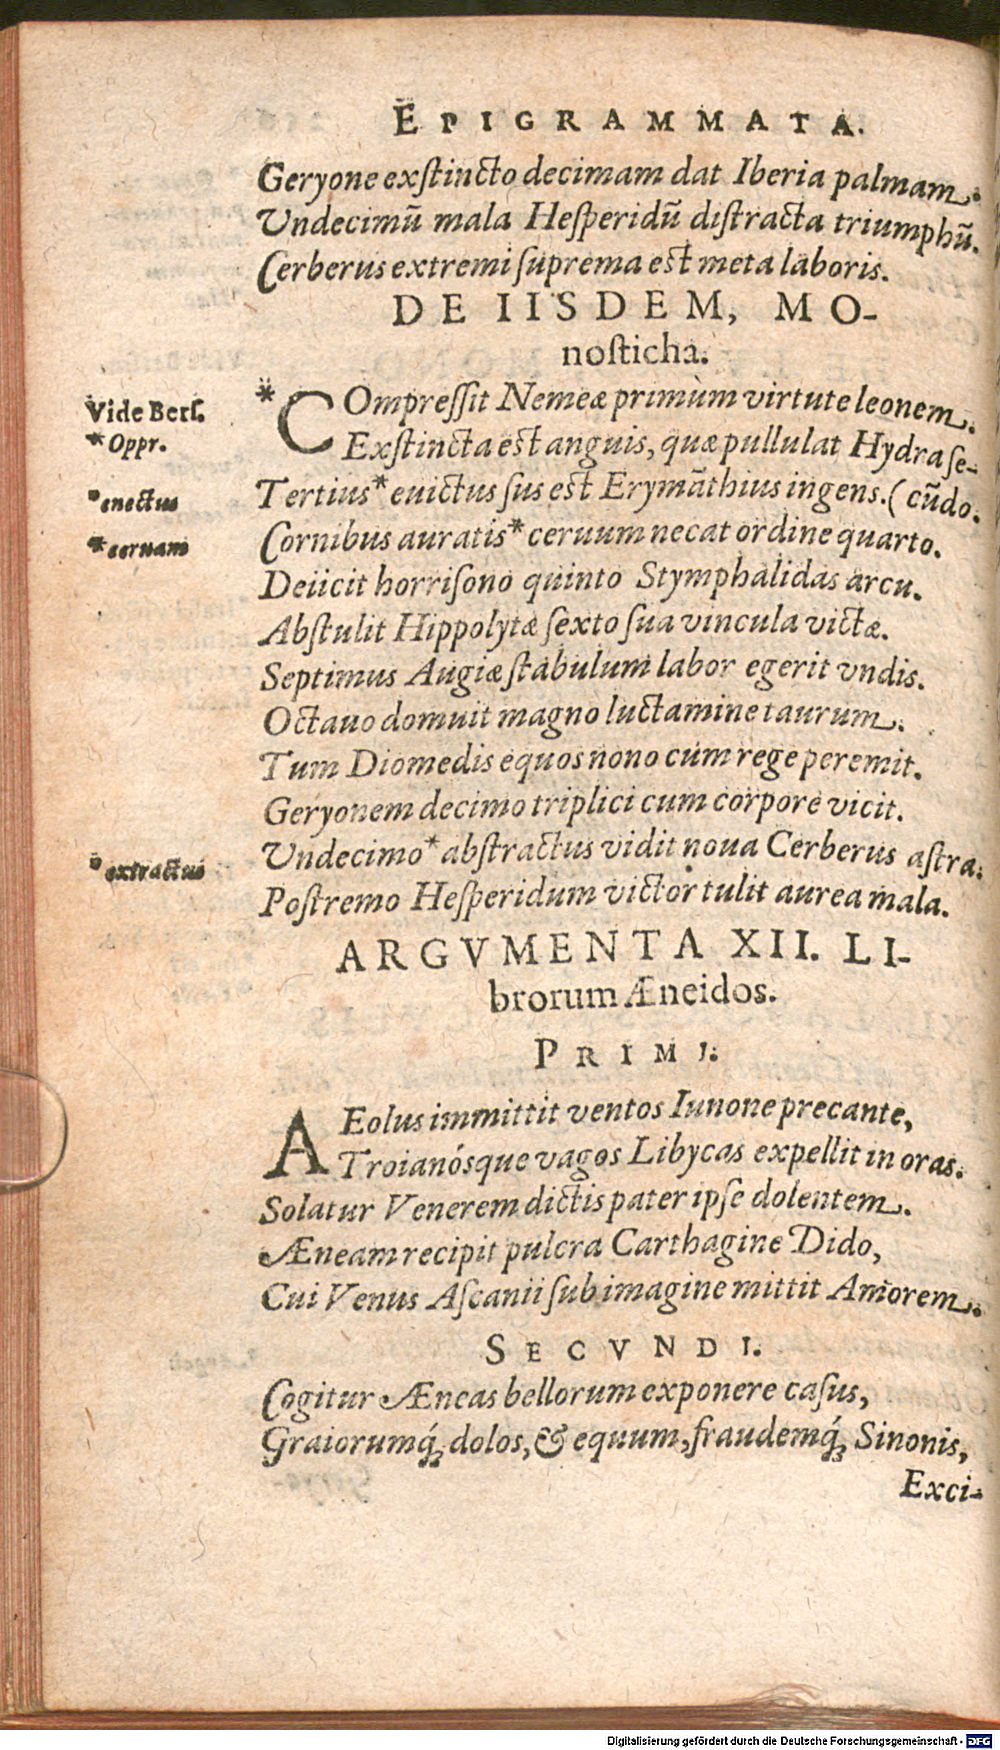 EPIGRAMMATA.
Geryone exſtincto decimam dat Iberia palmam.
Undecimū mala Heſperidū diſtracta triumphū.
Cerberus extremi ſuprema est meta laboris.
DE IISDEM, MO-
noſticha.
Vide Berſ.
* COmpreſſit Nemeæ primùm virtute leonem.
*Oppr.
Exſtincta est anguis, quæ pullulat Hydra ſe-
Tertius* euictus ſus est Erymāthius ingens. (cūdo.
*enectus
Cornibus auratis* ceruum necat ordine quarto.
*ceruam
Deiicit horriſono quinto Stymphalidas arcu.
Abſtulit Hippolytæ ſexto ſua vincula victæ.
Septimus Augiæ ſtabulum labor egerit vndis.
Octauo domuit magno luctamine taurum.
Tum Diomedis equos nono cum rege peremit.
Geryonem decimo triplici cum corpore vicit.
Undecimo* abſtractus vidit noua Cerberus aſtra.
*extractus
Poſtremo Heſperidum victor tulit aurea mala.
ARGVMENTA XII. LI-
brorum Æneidos.
PRIMI.
AEolus immittit ventos Iunone precante,
Troianósque vagos Libycas expellit in oras.
Solatur Venerem dictis pater ipſe dolentem.
Æneam recipit pulcra Carthagine Dido,
Cui Venus Aſcanii ſub imagine mittit Amorem.
SECVNDI.
Cogitur Æneas bellorum exponere caſus,
Graiorumq́; dolos, & equum, fraudemq́; Sinonis,
Exci-
Digitalisierung gefördert durch die Deutsche Forschungsgemeinschaft - DFG